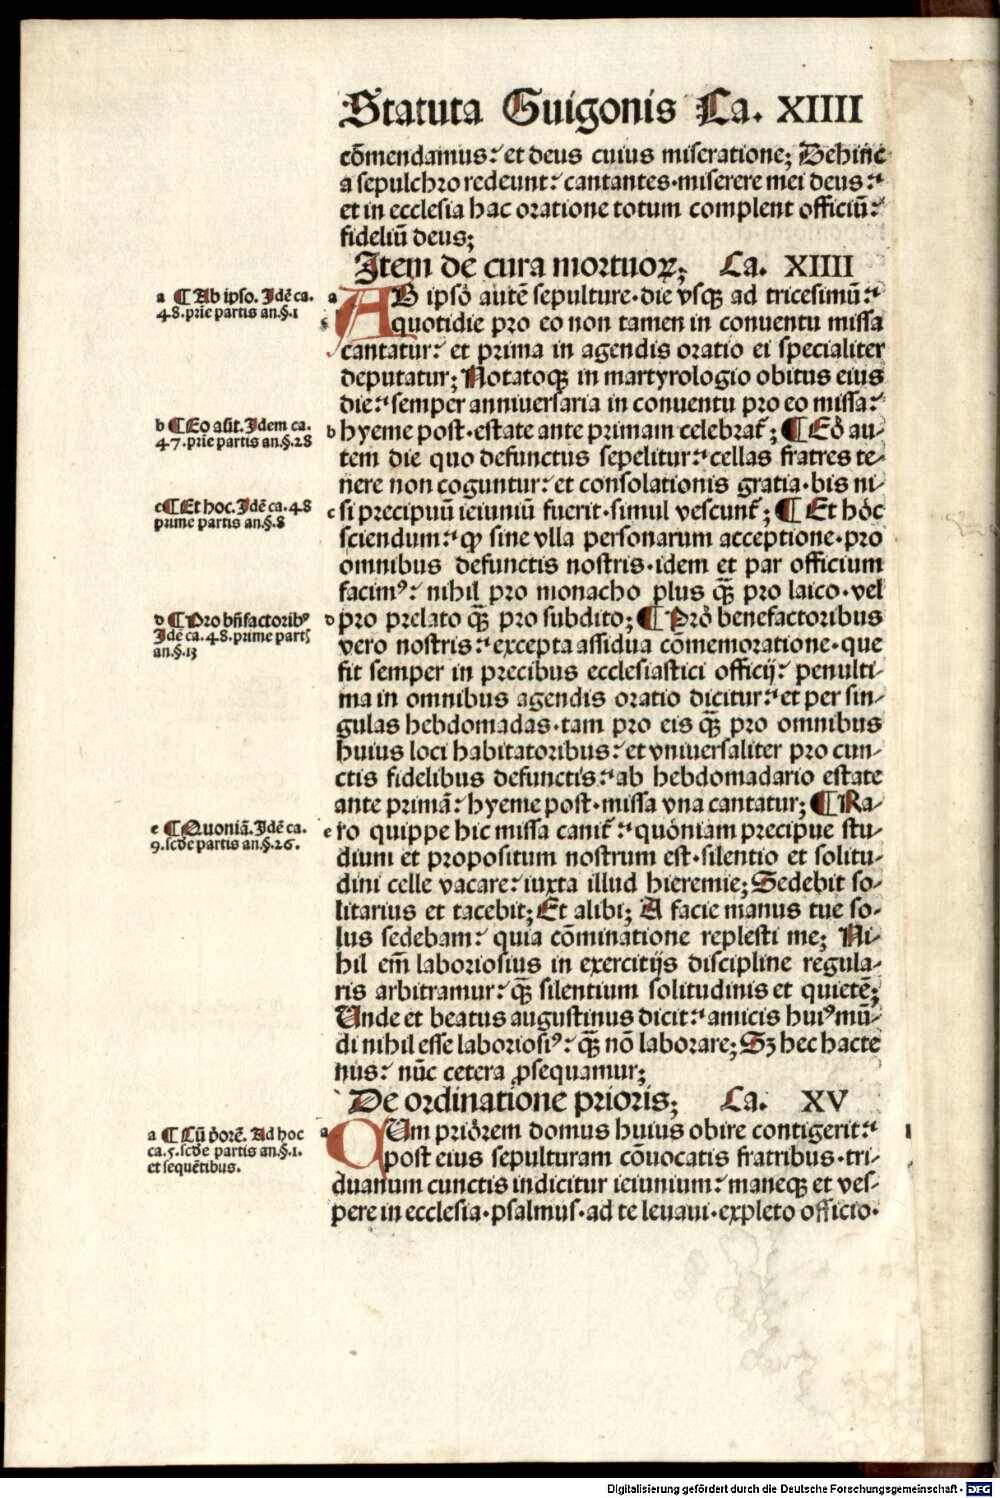 Statuta Guigonis Ca. XIIII
cōmendamus: et deus cuius miseratione; Dehinc
a sepulchro redeunt: cantantes·miserere mei deus:
et in ecclesia hac oratione totum complent officiū:
fideliū deus;
Item de cura mortuoꝝ; Ca. XIIII
a ¶ Ab ipso. Idē ca.
48. prīe partis an.§.1
a AB ipso autē sepulture·die vsqꝫ ad tricesimū:
quotidie pro eo non tamen in conuentu missa
cantatur: et prima in agendis oratio ei specialiter
deputatur; Notatoqꝫ in martyrologio obitus eius
die: semper anniuersaria in conuentu pro eo missa:
b ¶ Eo aūt. Idem ca.
47. prīe partis an.§.28
b hyeme post·estate ante primam celebrat̄; ¶ Eo au-
tem die quo defunctus sepelitur: cellas fratres te-
nere non coguntur: et consolationis gratia·bis ni-
c ¶ Et hoc. Idē ca.48
prime partis an.§.8
c si precipuū ieiuniū fuerit·simul vescunt̄; ¶ Et hoc
sciendum: ꝙ sine vlla personarum acceptione·pro
omnibus defunctis nostris·idem et par officium
facimꝰ: nihil pro monacho plus qꝫ̄ pro laico·vel
d ¶ Pro bn̄factoribꝰ
Idē ca.48. prime part̄
an.§.13
d pro prelato qꝫ̄ pro subdito; ¶ Pro benefactoribus
vero nostris: excepta assidua cōmemoratione·que
fit semper in precibus ecclesiastici officij: penulti-
ma in omnibus agendis oratio dicitur: et per sin-
gulas hebdomadas·tam pro eis qꝫ̄ pro omnibus
huius loci habitatoribus: et vniuersaliter pro cun-
ctis fidelibus defunctis: ab hebdomadario estate
ante primā: hyeme post·missa vna cantatur; ¶ Ra-
e ¶ Quoniā. Idē ca.
9. scd̄e partis an.§.26.
e ro quippe hic missa canit̄: quoniam precipue stu-
dium et propositum nostrum est·silentio et solitu-
dini celle vacare: iuxta illud hieremie; Sedebit so-
litarius et tacebit; Et alibi; A facie manus tue so-
lus sedebam: quia cōminatione replesti me; Ni-
hil em̄ laboriosius in exercitijs discipline regula-
ris arbitramur: qꝫ̄ silentium solitudinis et quietē;
Unde et beatus augustinus dicit: amicis huiꝰ mū-
di nihil esse laboriosiꝰ: qꝫ̄ nō laborare; Sꝫ hec hacte
nus: nūc cetera ꝓsequamur;
De ordinatione prioris; Ca. XV
a ¶ Cū p̄orē. Ad hoc
ca.5. scd̄e partis an.§.1.
et sequētibus.
a QUm priorem domus huius obire contigerit:
post eius sepulturam cōuocatis fratribus·tri-
duanum cunctis indicitur ieiunium: maneqꝫ et ves-
pere in ecclesia·psalmus·ad te leuaui·expleto officio·
Digitalisierung gefördert durch die Deutsche Forschungsgemeinschaft · DFG